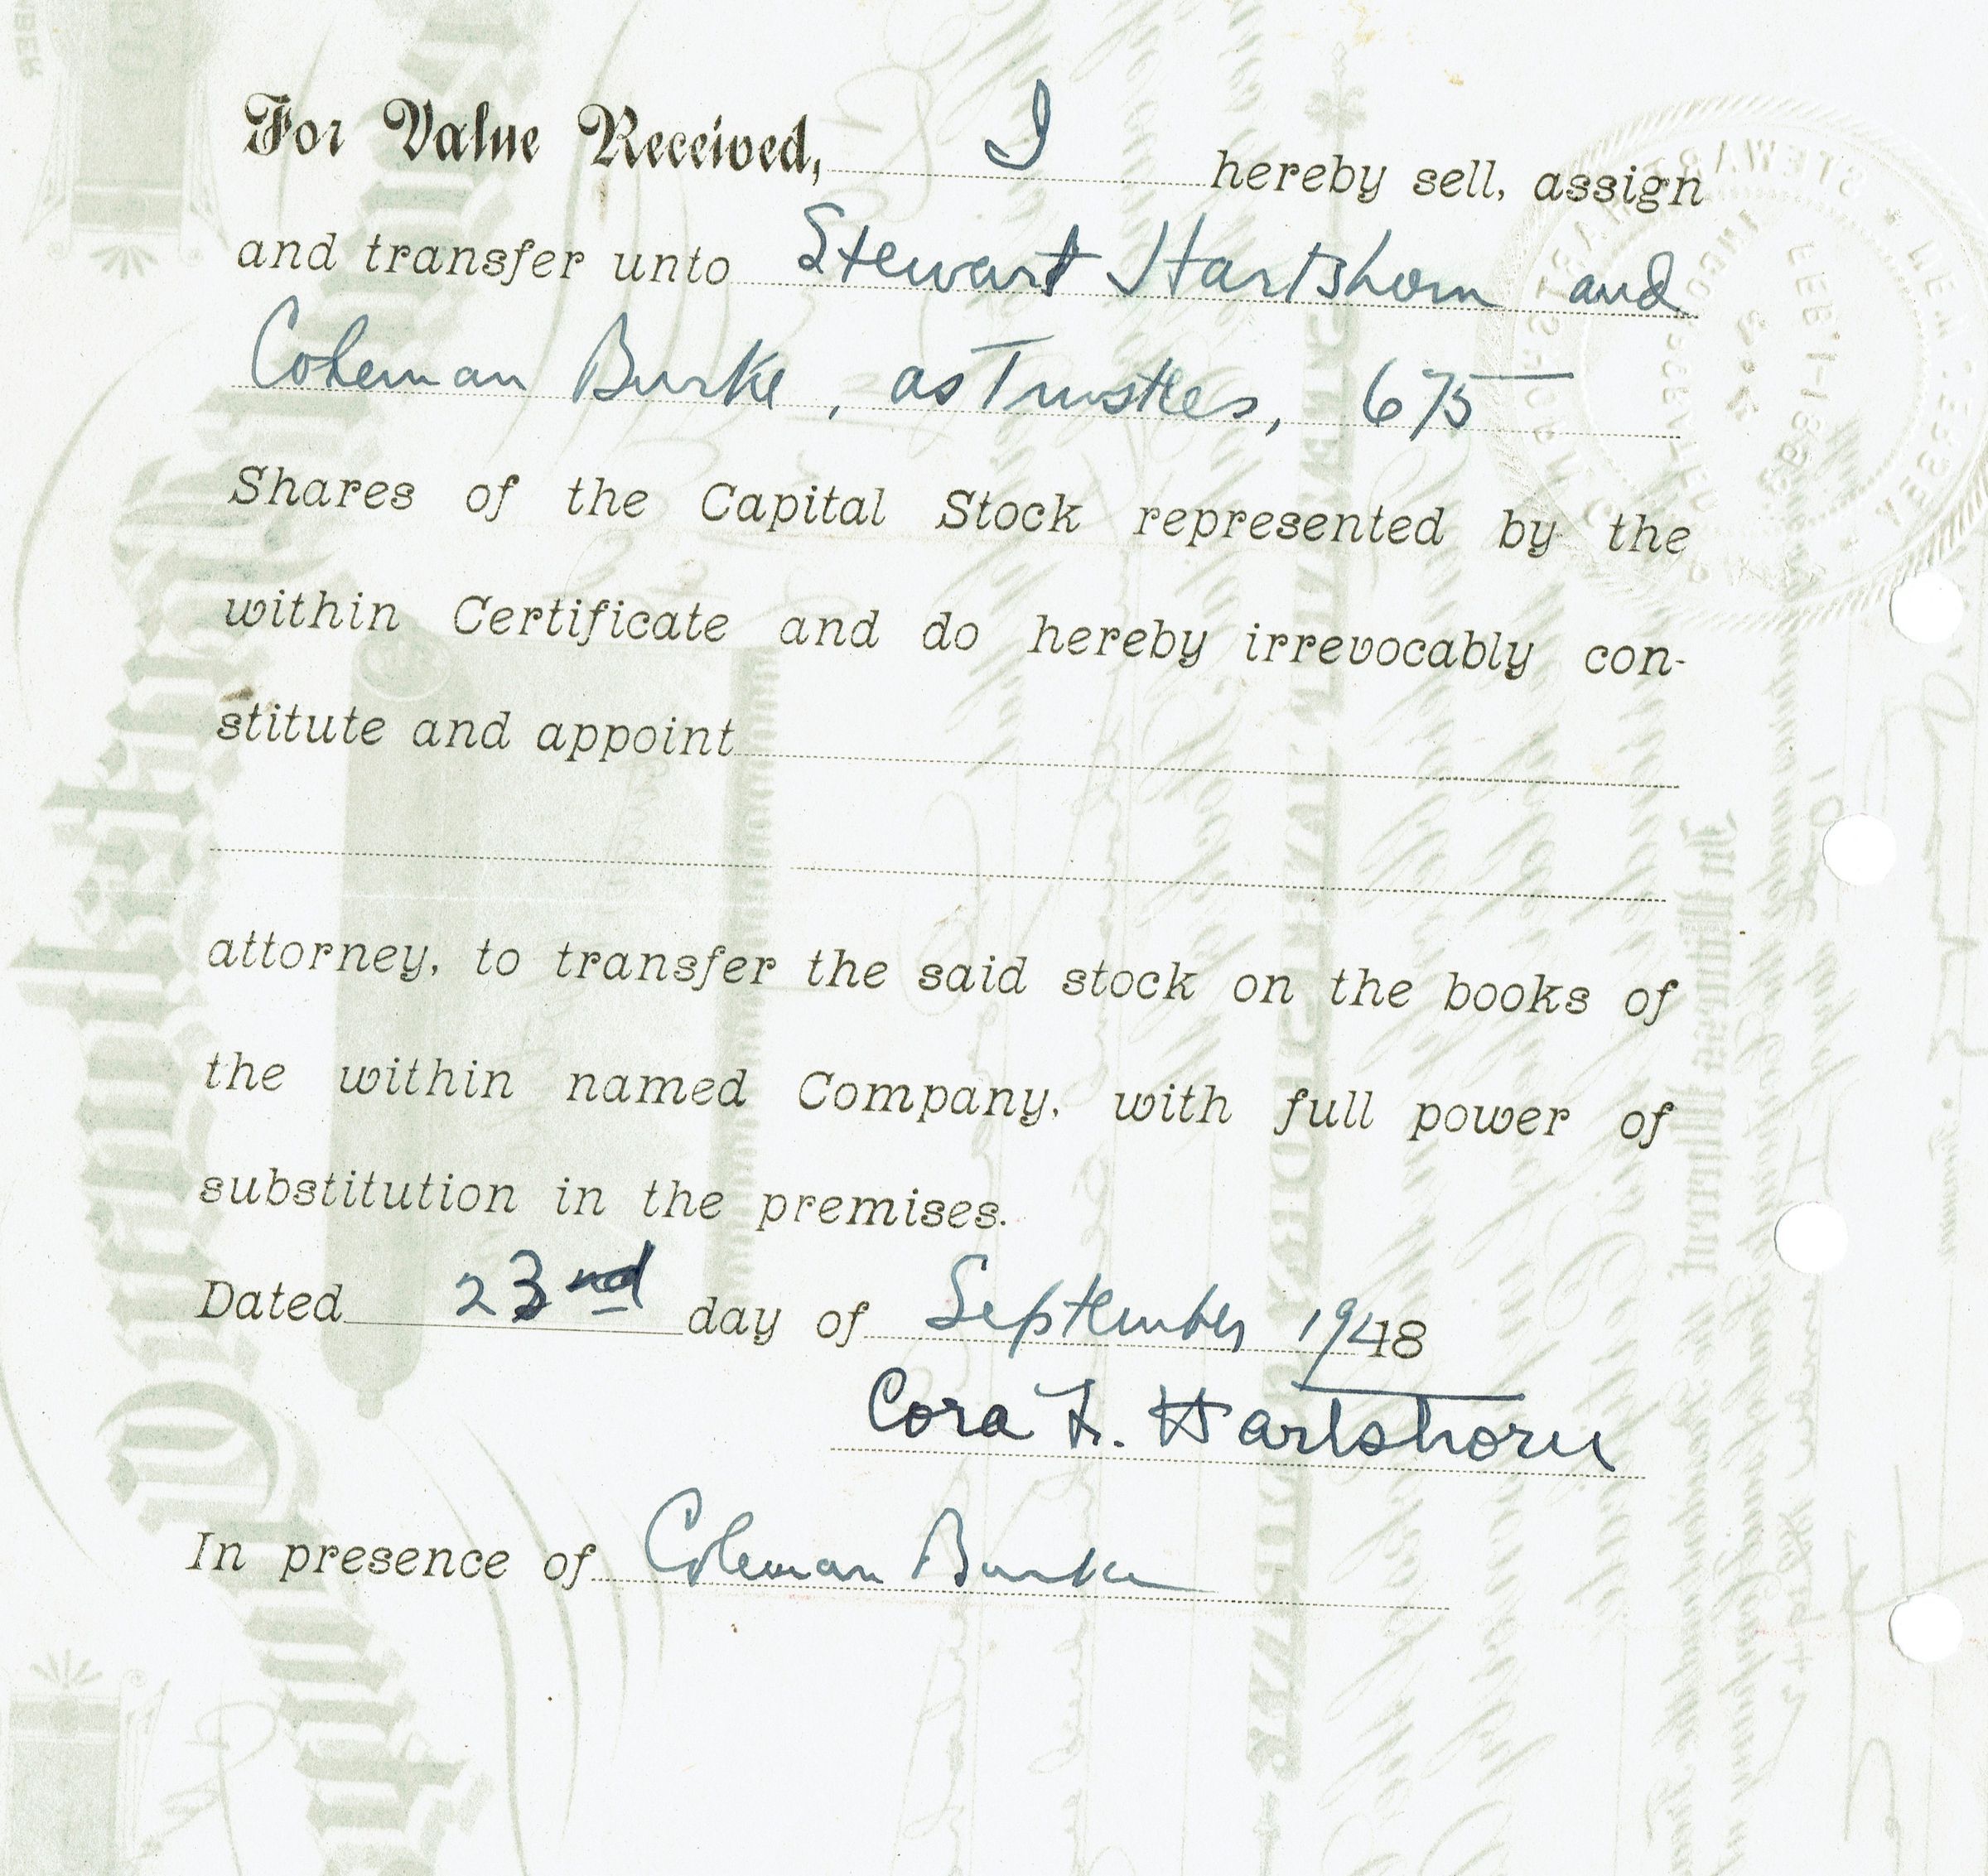 For Value Received, I hereby sell, assign
and transfer unto Stewart Hartshorn and
Coleman Burke, as Trustees, 675
Shares of the Capital Stock represented by the
within Certificate and do hereby irrevocably con-
stitute and appoint
attorney, to transfer the said stock on the books of
the within named Company, with full power of
substitution in the premises.
Dated 23rd day of September 1948
Cora L. Hartshorn
In presence of Coleman Burke